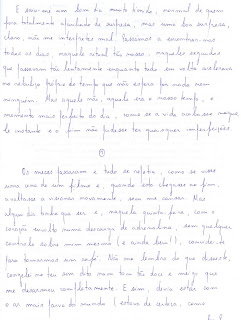 E sorriu-me um dom dia muito tímido, normal de quem
fora totalmente apanhado de surpresa, mas uma boa surpresa,
claro, não me interpretes mal. Passámos a encontrar-nos
todos os dias, naquele ritual tão nosso, naqueles segundos
que passavam tão lentamente enquanto tudo em volta acelerava
no relógio próprio do tempo que não espera por nada nem
ninguém. Mas aquele não, aquele era o nosso tempo, o
momento mais perfeito do dia, como se a vida ainda se
le montante e o fim não pudesse ter quaisquer imperfeições
Os meses passavam e tudo se repetia, como se visse
uma cena de um filme e, quando esta chegasse ao fim,
voltasse a visioná-la novamente, sem me cansar. Mas
algum dia tinha que ser e, naquela quinta-feira, com o
coração envolto numa descarga de adrenalina, sem qualquer
controlo sobre mim mesmo (e ainda bem!), convidei-te
para tomarmos um café. Não me lembro do que disseste,
congelei no teu sim dito num tom tão doce e meigo que
me desarmou completamente. E sim, devia estar com
o ar mais parvo do mundo (estavas de estrela, como